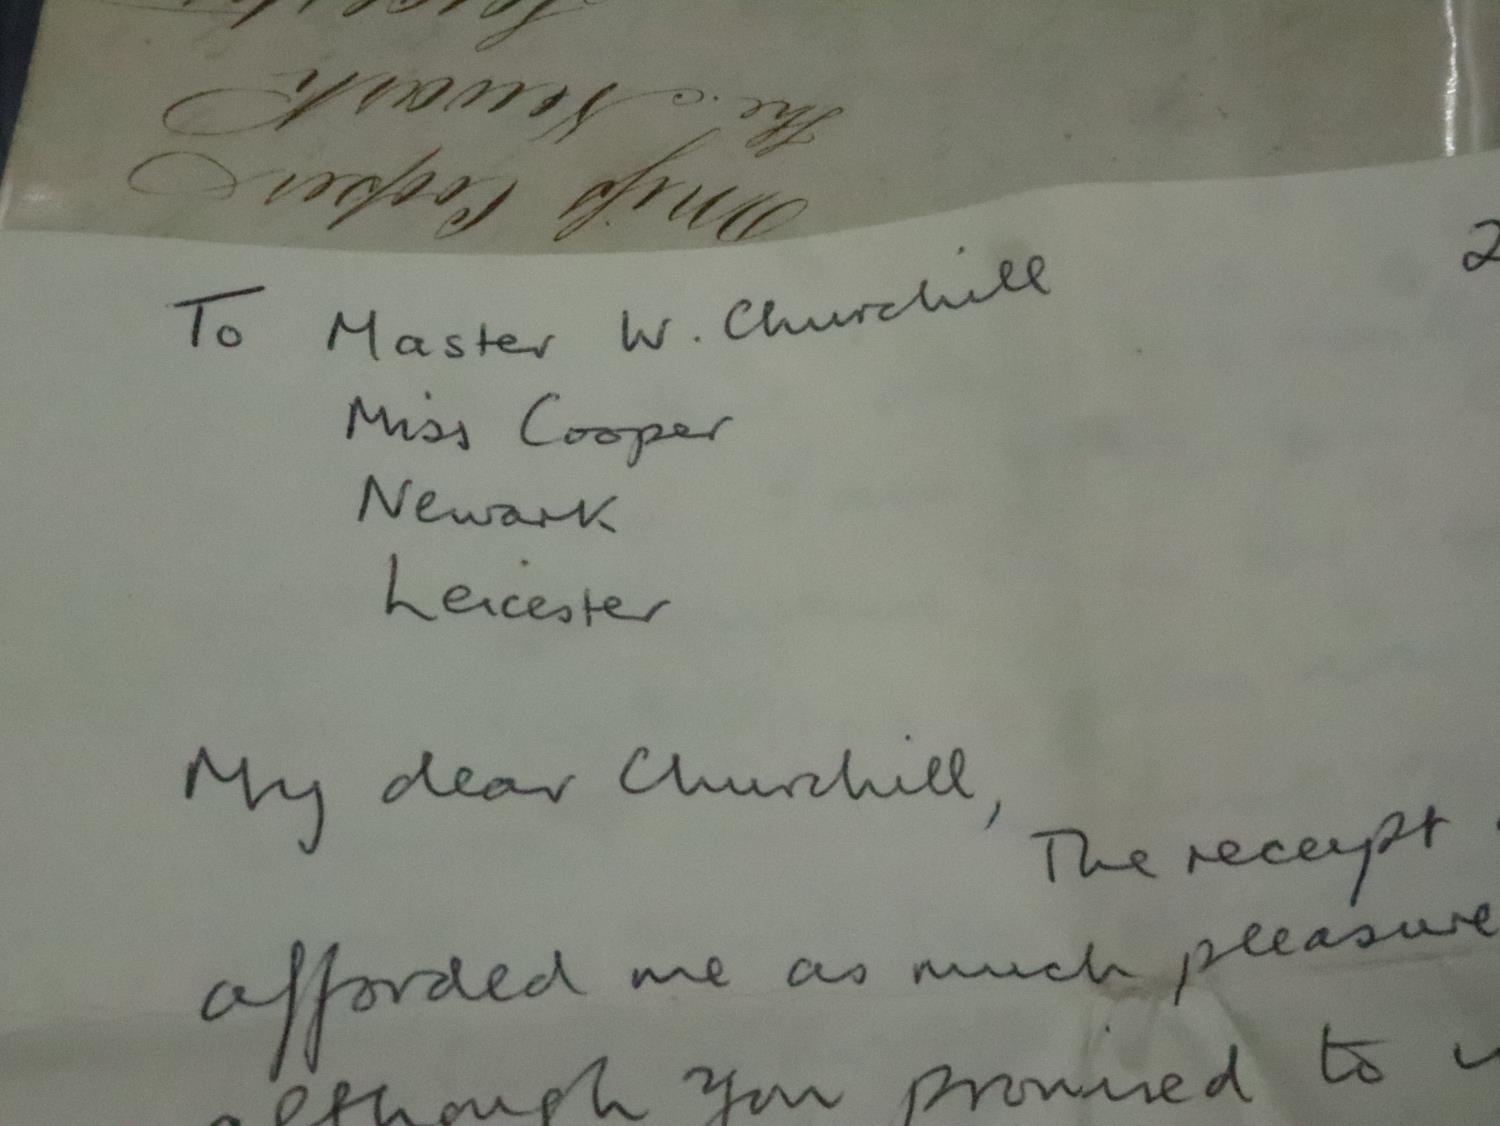 The Newark
Miss Cooper
2
To Master W. Churchill
Miss Cooper
Newark
Leicester
My dear Churchill,
The receipt
afforded me as much pleasure
although you promised to